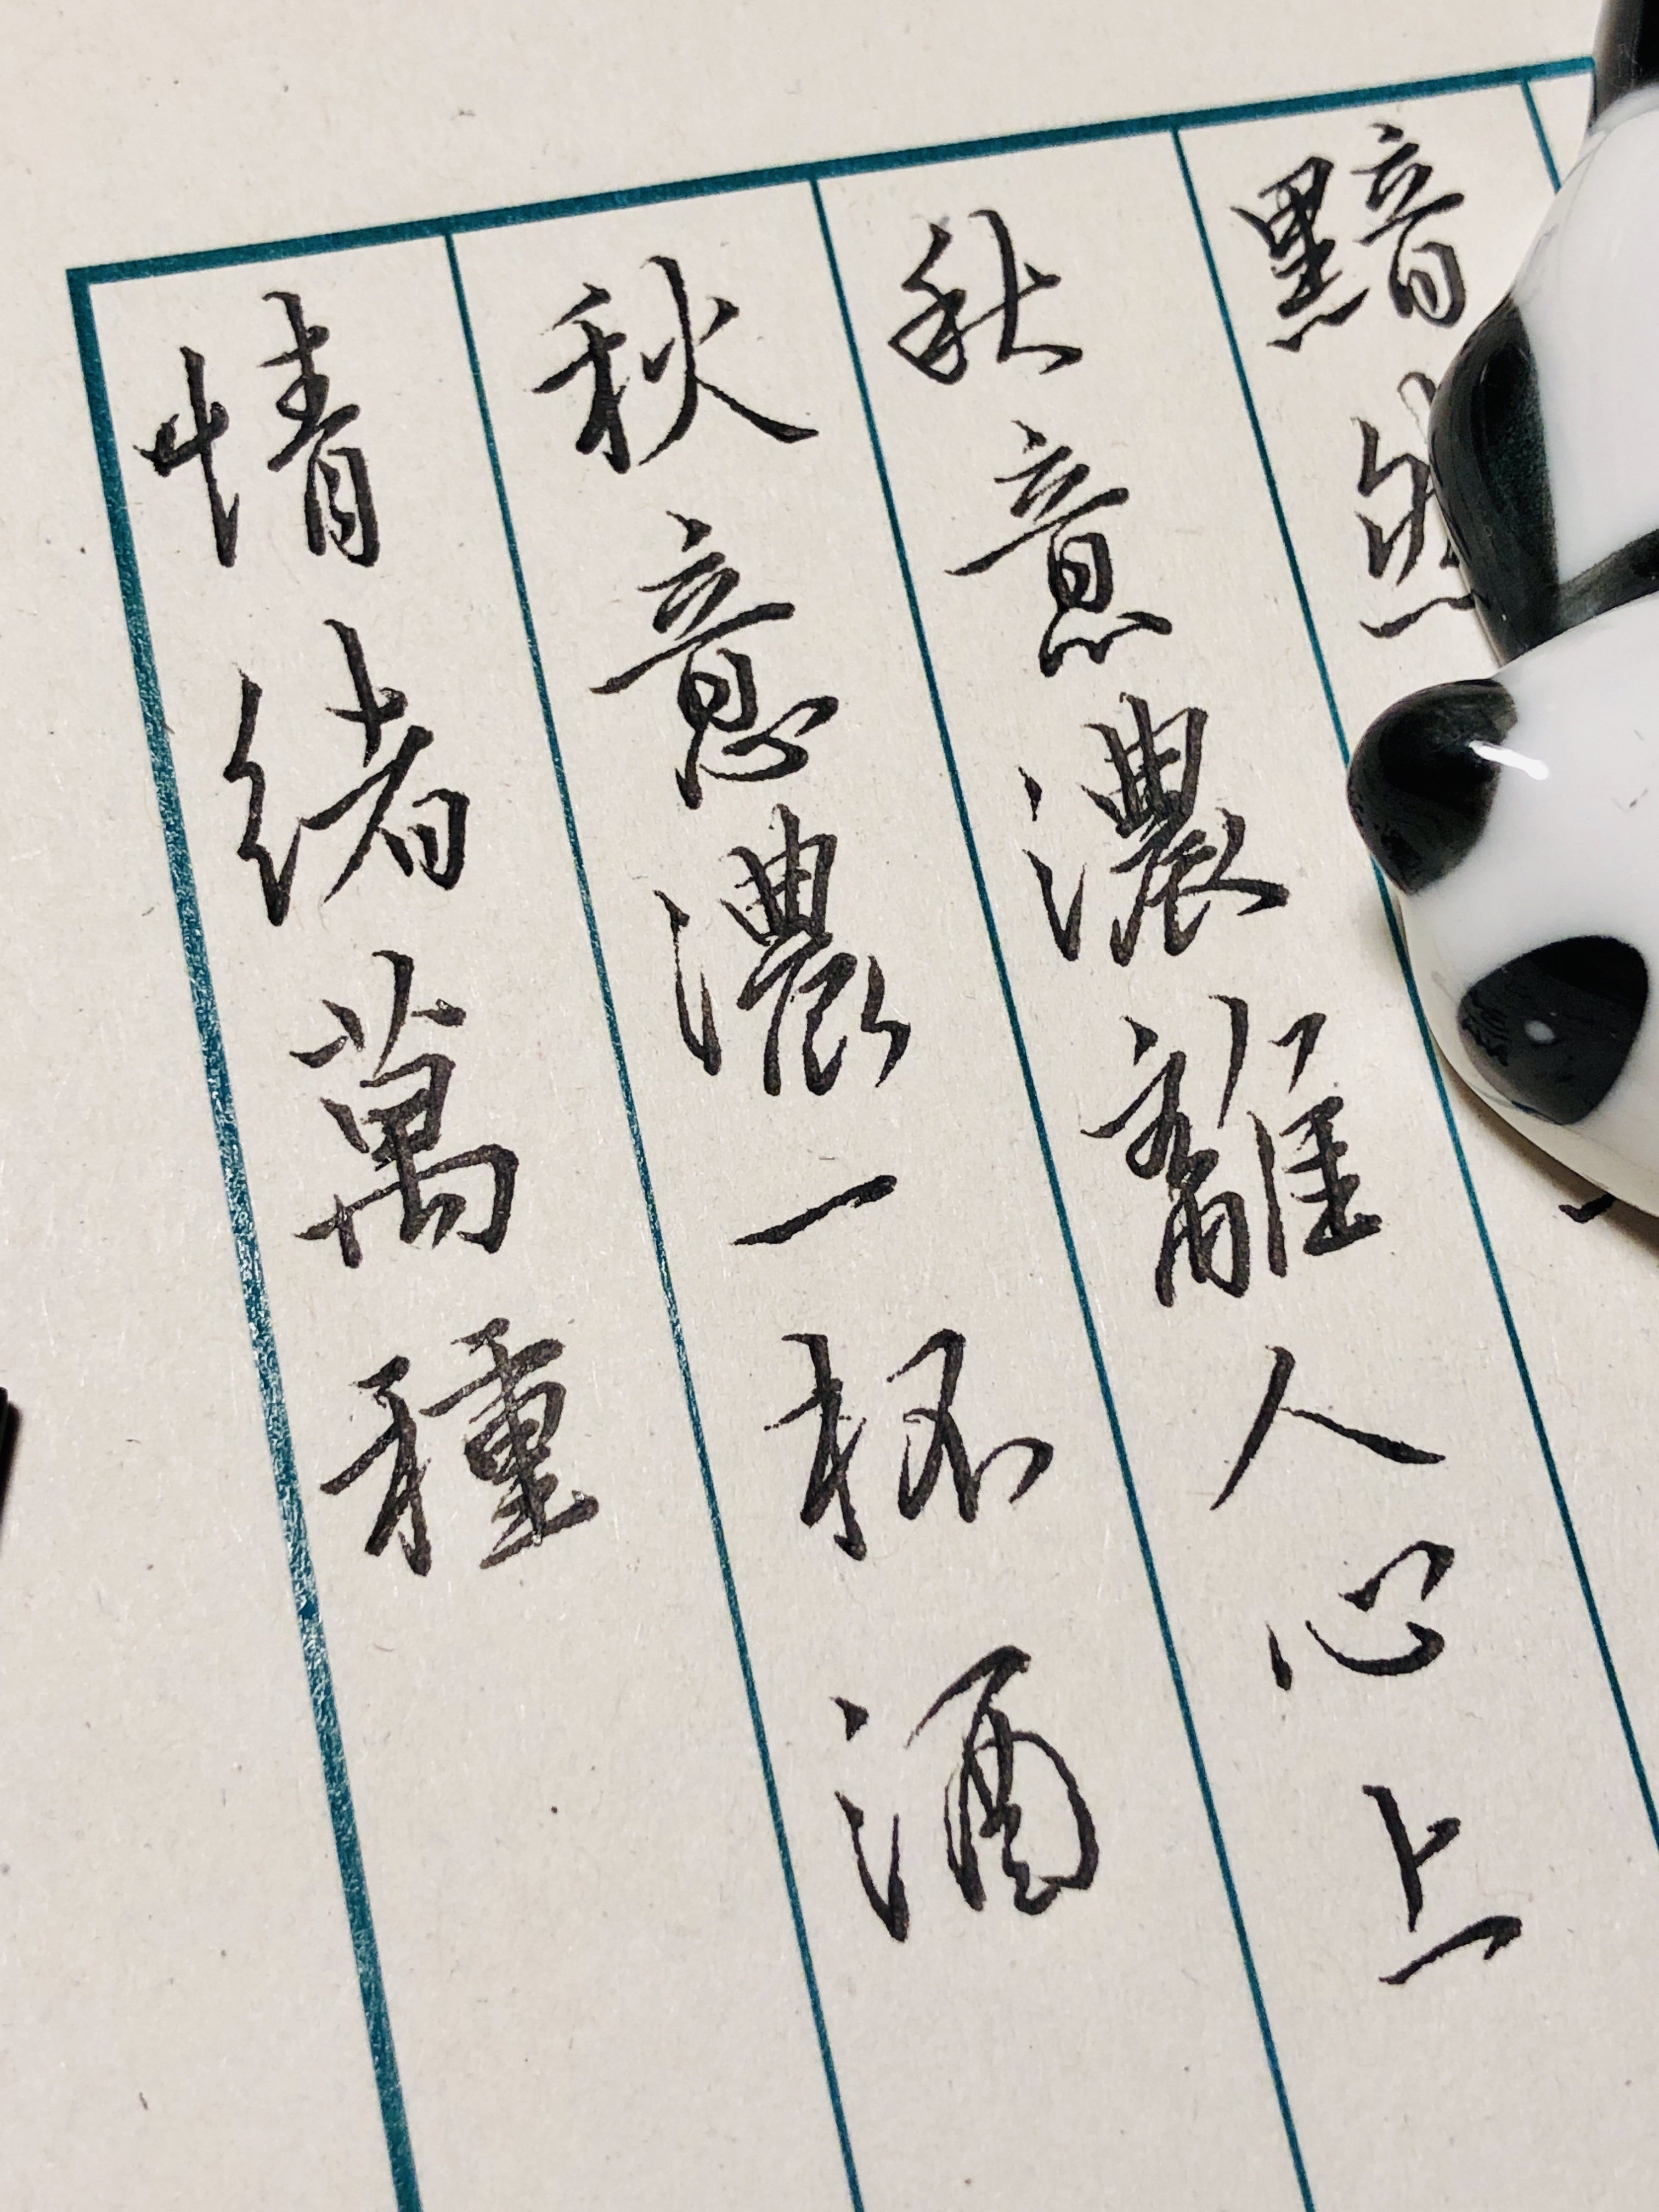 黯然
秋意濃離人心上
秋意濃一杯酒
情緒萬種